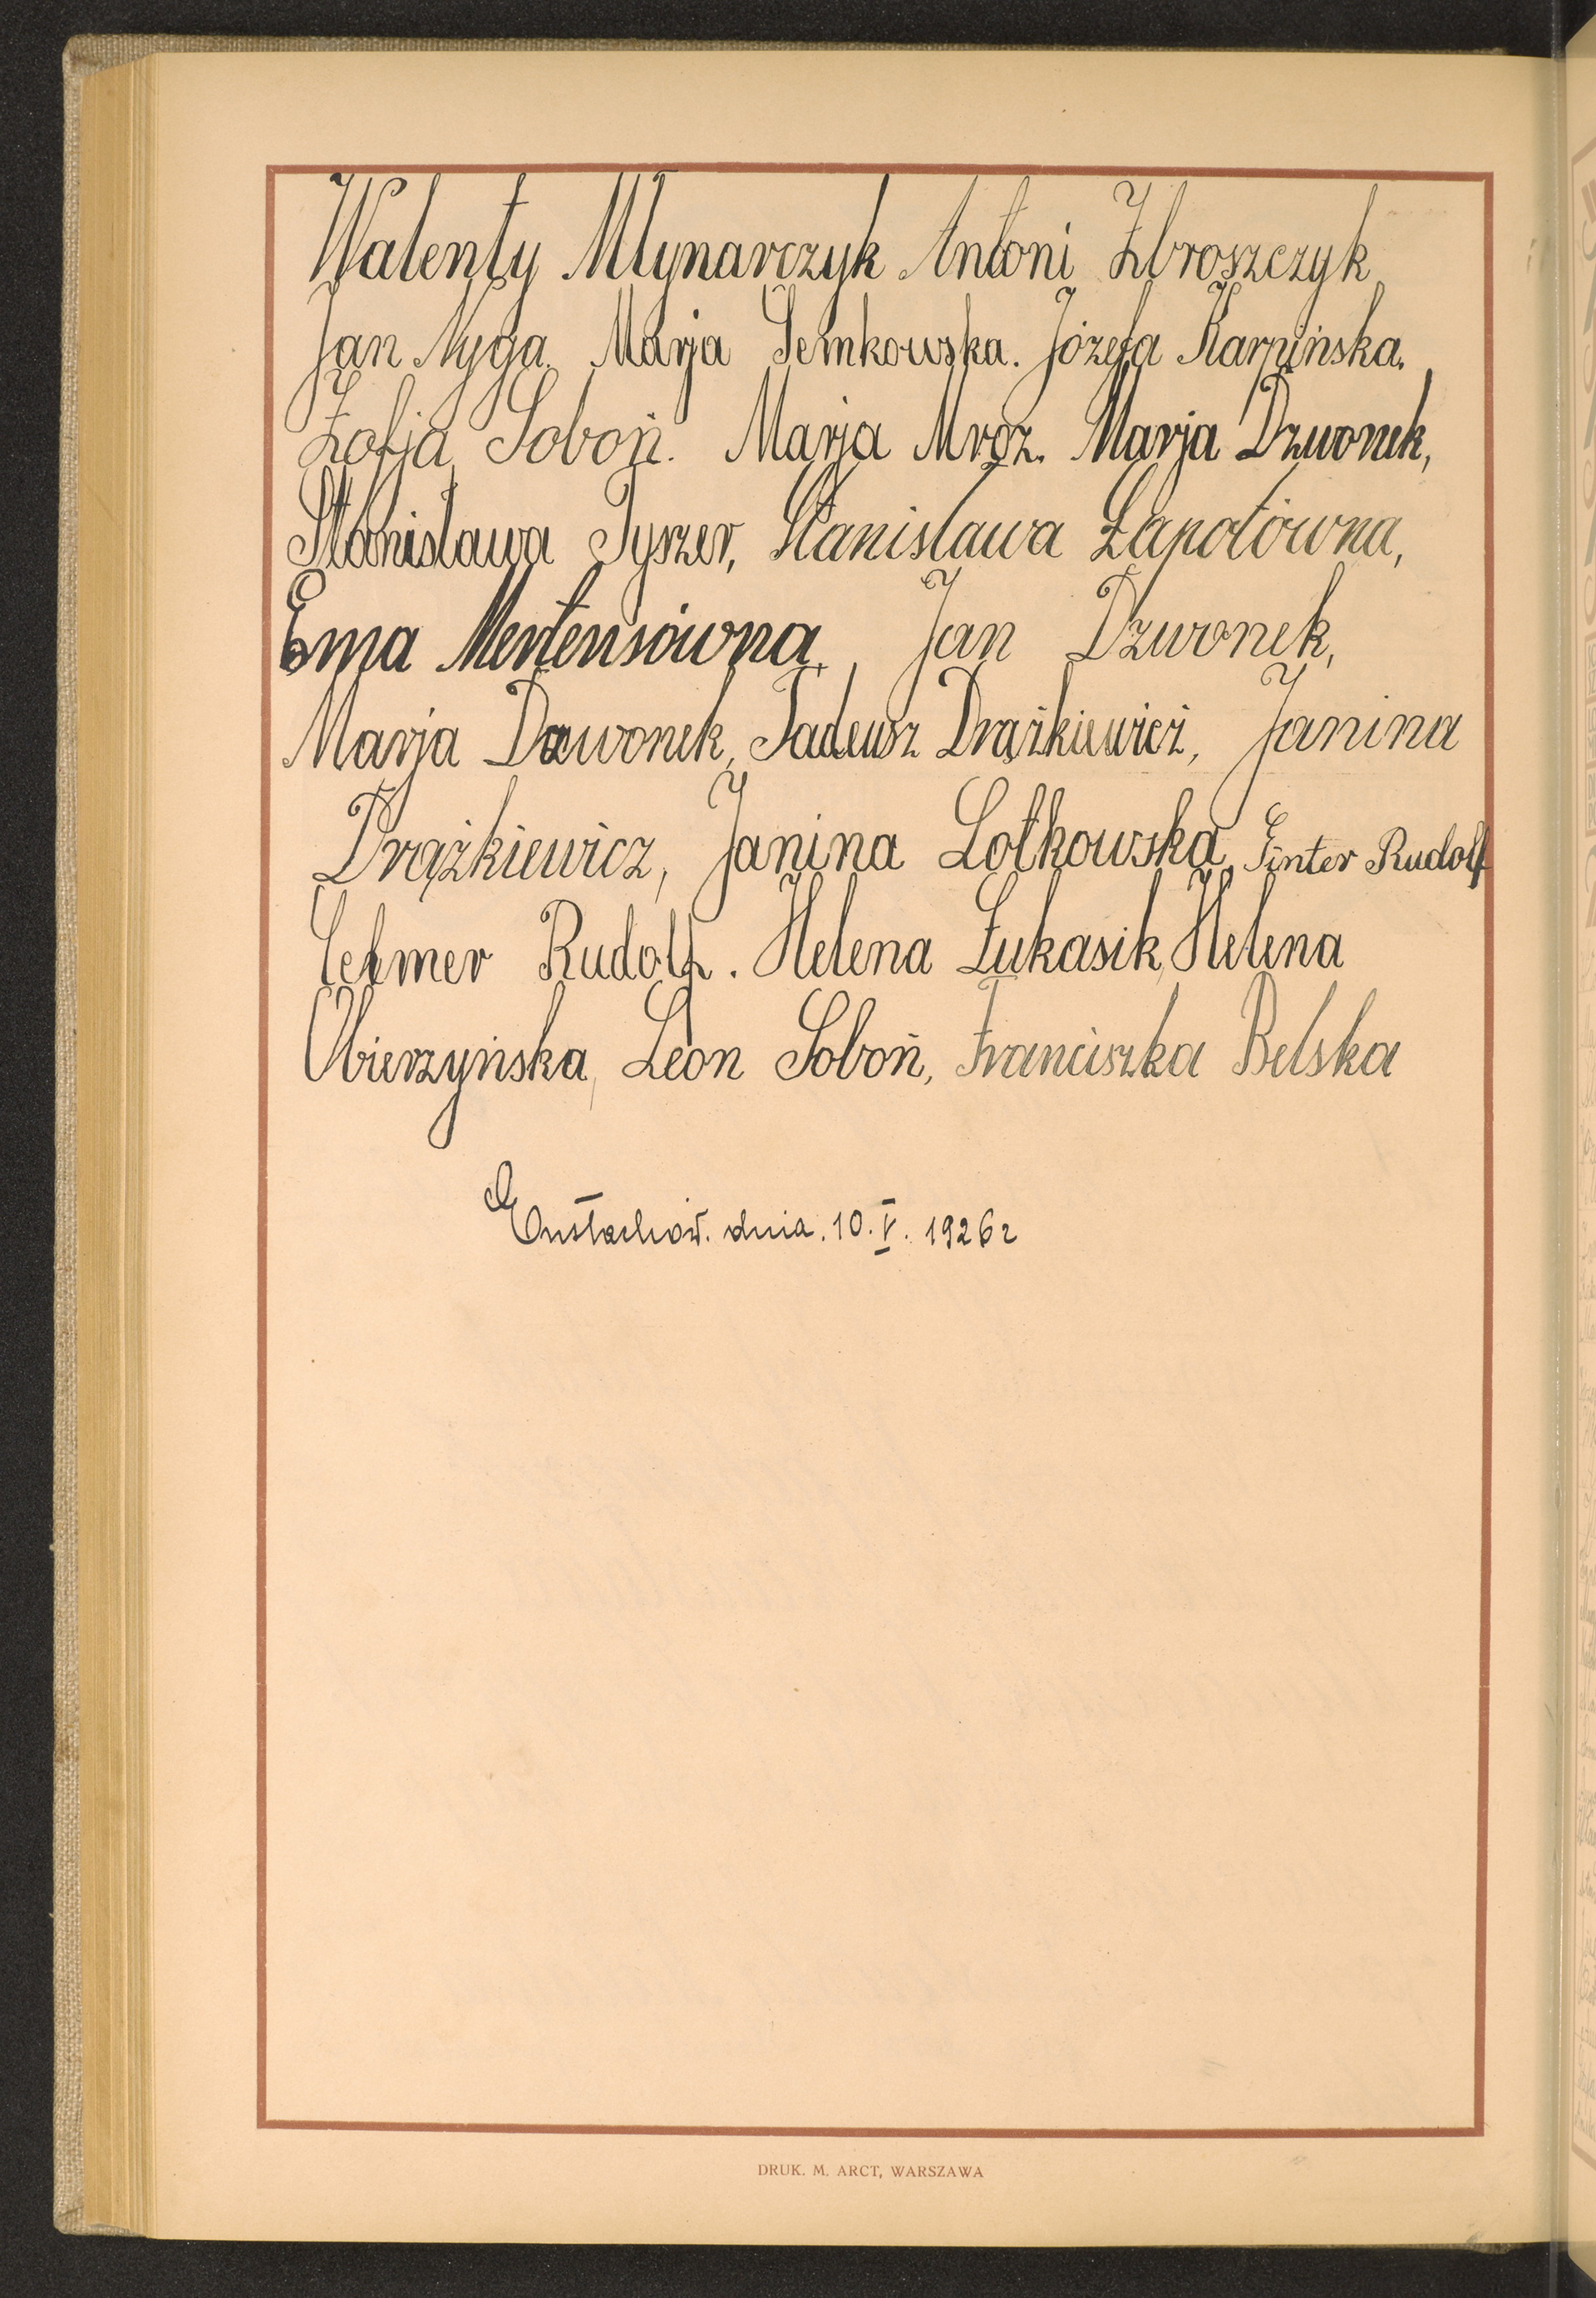 Walenty Młynarczyk Antoni Zbroszczyk
Jan Nyga. Marja Semkowska. Józefa Karpińska.
Zofja Soboń. Marja Mróz. Marja Dzwonek,
Stanisława Tyszer, Stanisława Łapotówna,
Ema Mertensówna, Jan Dzwonek,
Marja Dzwonek, Tadeusz Drążkiewicz, Janina
Drążkiewicz, Janina Lotkowska, Ginter Rudolf
Lehmer Rudolf. Helena Łukasik, Helena
Obierzyńska, Leon Soboń, Franciszka Belska
Eustachów. dnia. 10. V. 1926 r
DRUK. M. ARCT, WARSZAWA